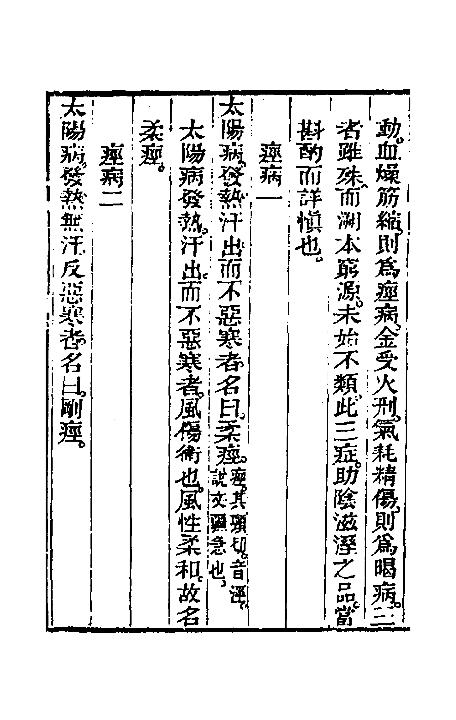 動。血燥筋縮。則為痙病。金受火刑。氣耗精傷。則為暍病。三
者雖殊。而溯本窮源。未始不類。此三症。助陰滋溼之品。當
斟酌而詳慎也。
痙病一
太陽病。發熱汗出。而不惡寒者。名曰。柔痙。痙。其頸切。音涇。說文。彊急也。
太陽病發熱。汗出。而不惡寒者。風傷衛也。風性柔和。故名
柔痙。
痙病二
太陽病。發熱無汗。反惡寒者。名曰。剛痙。